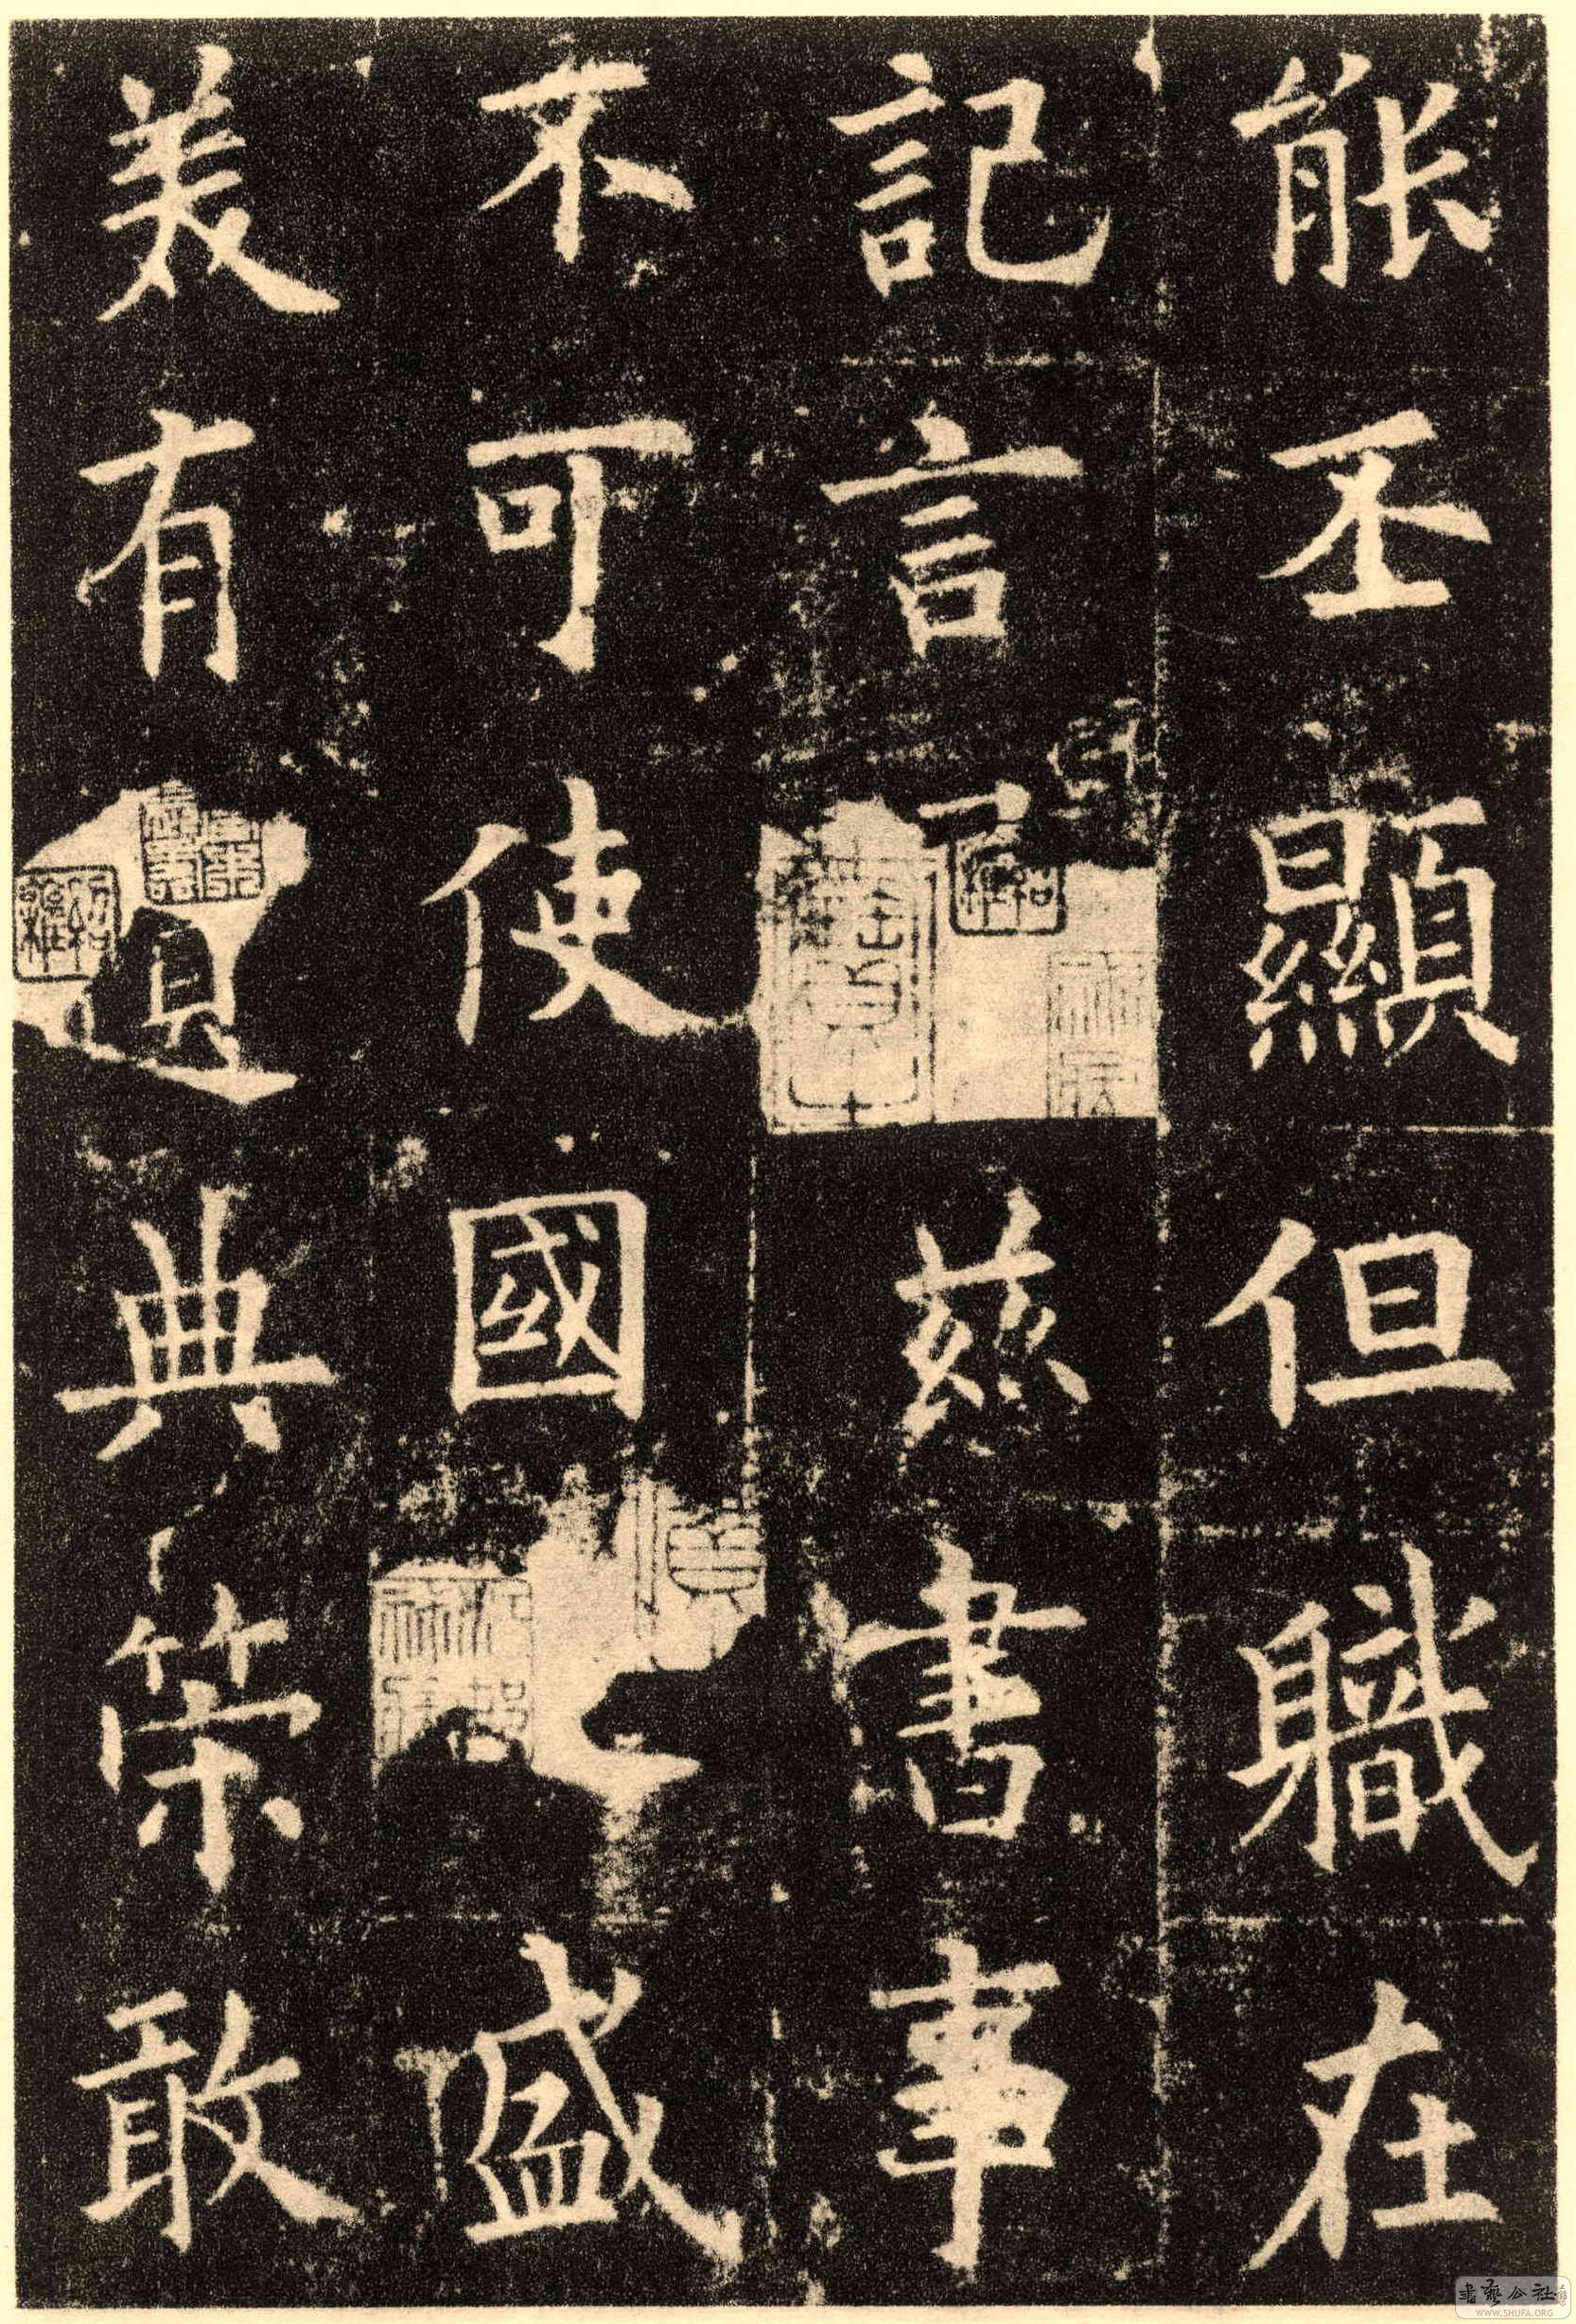 能丕顯但軄在
記言茲書事
不可使國盛
美有遺典策敢
書藝公社
WWW.SHUFA.ORG